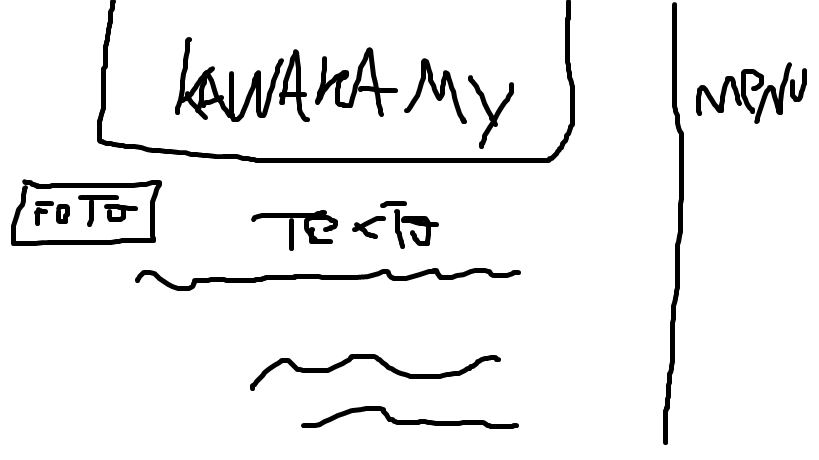 KAWAKAMY
MENU
FOTO
TEXTO